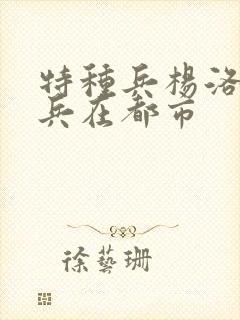 特種兵楊洛
兵在都市
徐藝珊